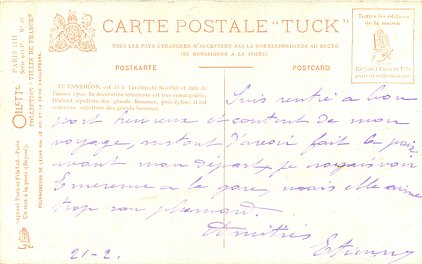 CARTE POSTALE "TUCK"
TOUS LES PAYS ÉTRANGERS N'ACCEPTENT PAS LA CORRESPONDANCE AU RECTO.
(SE RENSEIGNER A LA POSTE)
POSTKARTE
POSTCARD
Toutes les éditions
de la maison
PARIS (III)
COLLECTION "VILLES DE FRANCE"
LE PANTHÉON, est dû à l'architecte Soufflot et date de
l'année 1790. Sa décoration intérieure est très remarquable.
D'abord sépulture des grands hommes, puis église, il est
redevenu sépulture des grands hommes.
Suis rentré a bon
port heureux et content de mon
voyage, surtout d'avoir fait la paix
avant mon départ, je
a la gare, mais elle aime
trop son plumard.
Amitiés
Etienne
21-2.